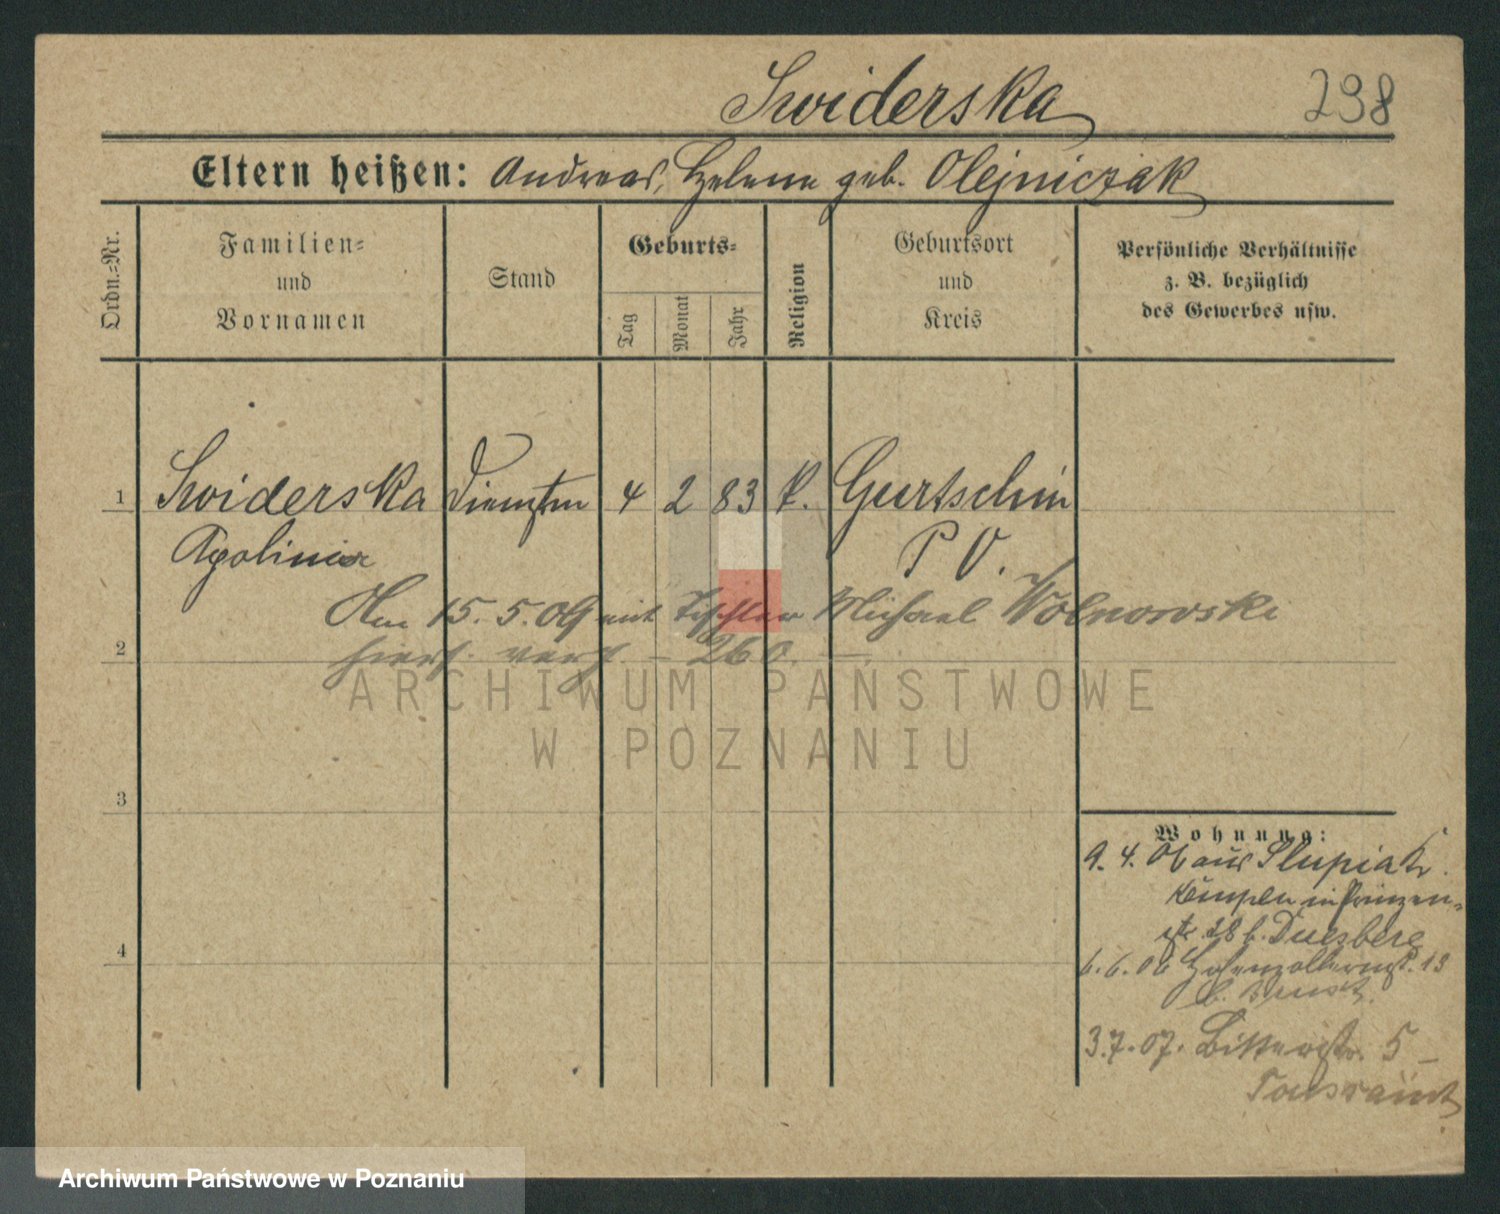 Swiderska 298
Eltern heißen: Andreas, Helene geb. Olejniczak
Ordn.=Nr.
Familien=
und
Vornamen
Stand
Geburts=
Tag
Monat
Jahr
Religion
Geburtsort
und
Kreis
Persönliche Verhältnisse
z. B. bezüglich
des Gewerbes usw.
1 Swiderska 4 2 83 K. Gurtschin
Apolinia P V.
Am 15. 5. 09 mit Tischler Michael Wolnowski
2 hiers. verh. – 260. –
3
4
Wohnung:
9. 4. 06 aus Slupia K.
Kempen in Prinzen-
str 28 b. Duesberg
6. 6. 06 Hohenzollernstr. 13
b.
3.7.07. Bitterstr. 5 –
ARCHIWUM PAŃSTWOWE
W POZNANIU
Archiwum Państwowe w Poznaniu